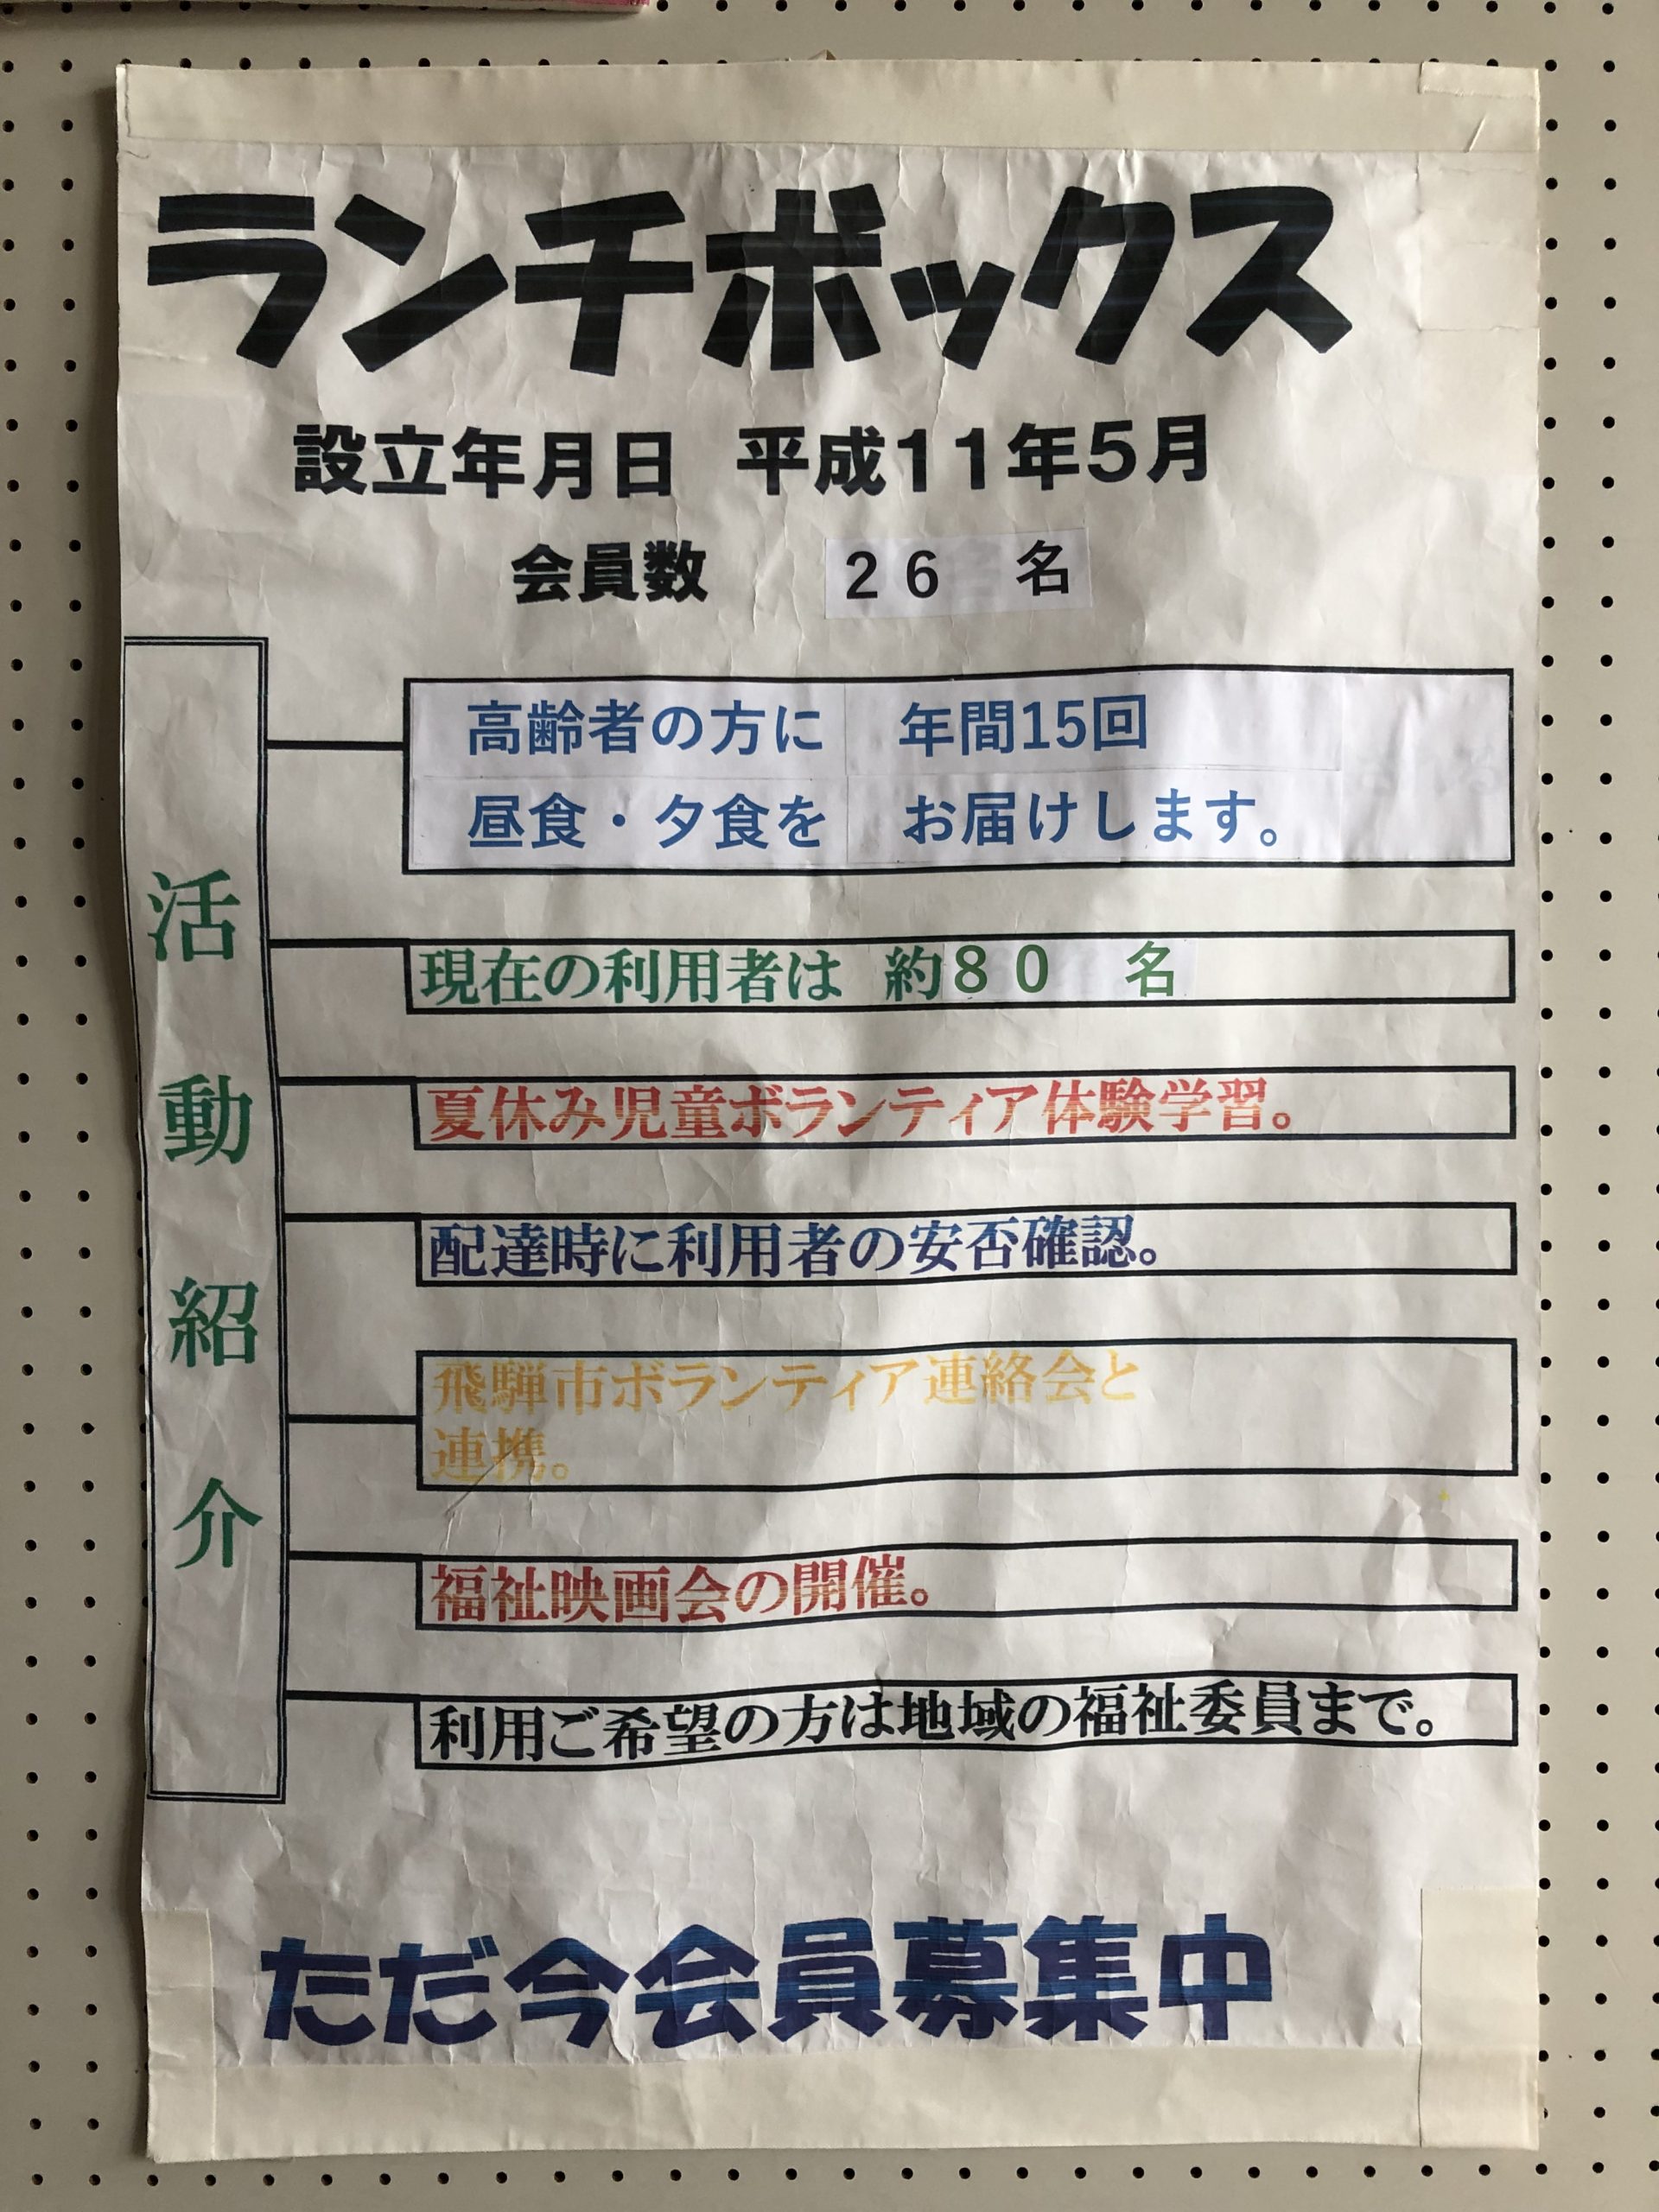 ランチボックス
設立年月日　平成11年5月
会員数　26　名
活動紹介
高齢者の方に　年間15回
昼食・夕食を　お届けします。
現在の利用者は　約80　名
夏休み児童ボランティア体験学習。
配達時に利用者の安否確認。
飛騨市ボランティア連絡会と
連携。
福祉映画会の開催。
利用ご希望の方は地域の福祉委員まで。
ただ今会員募集中